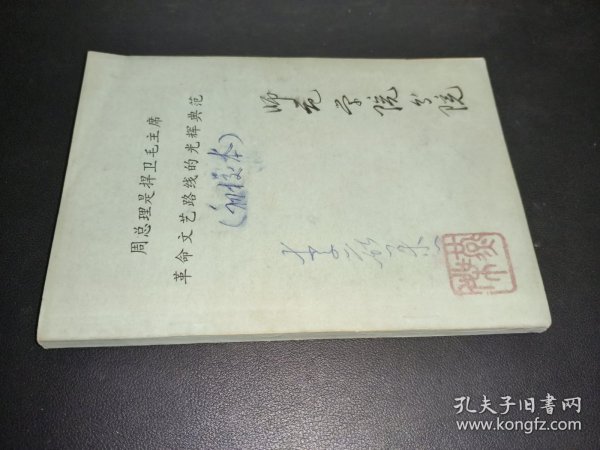 周总理是捍卫毛主席
革命文艺路线的光辉典范
(初校本)
师范学院分院
孔夫子旧书网
www.kongfz.com